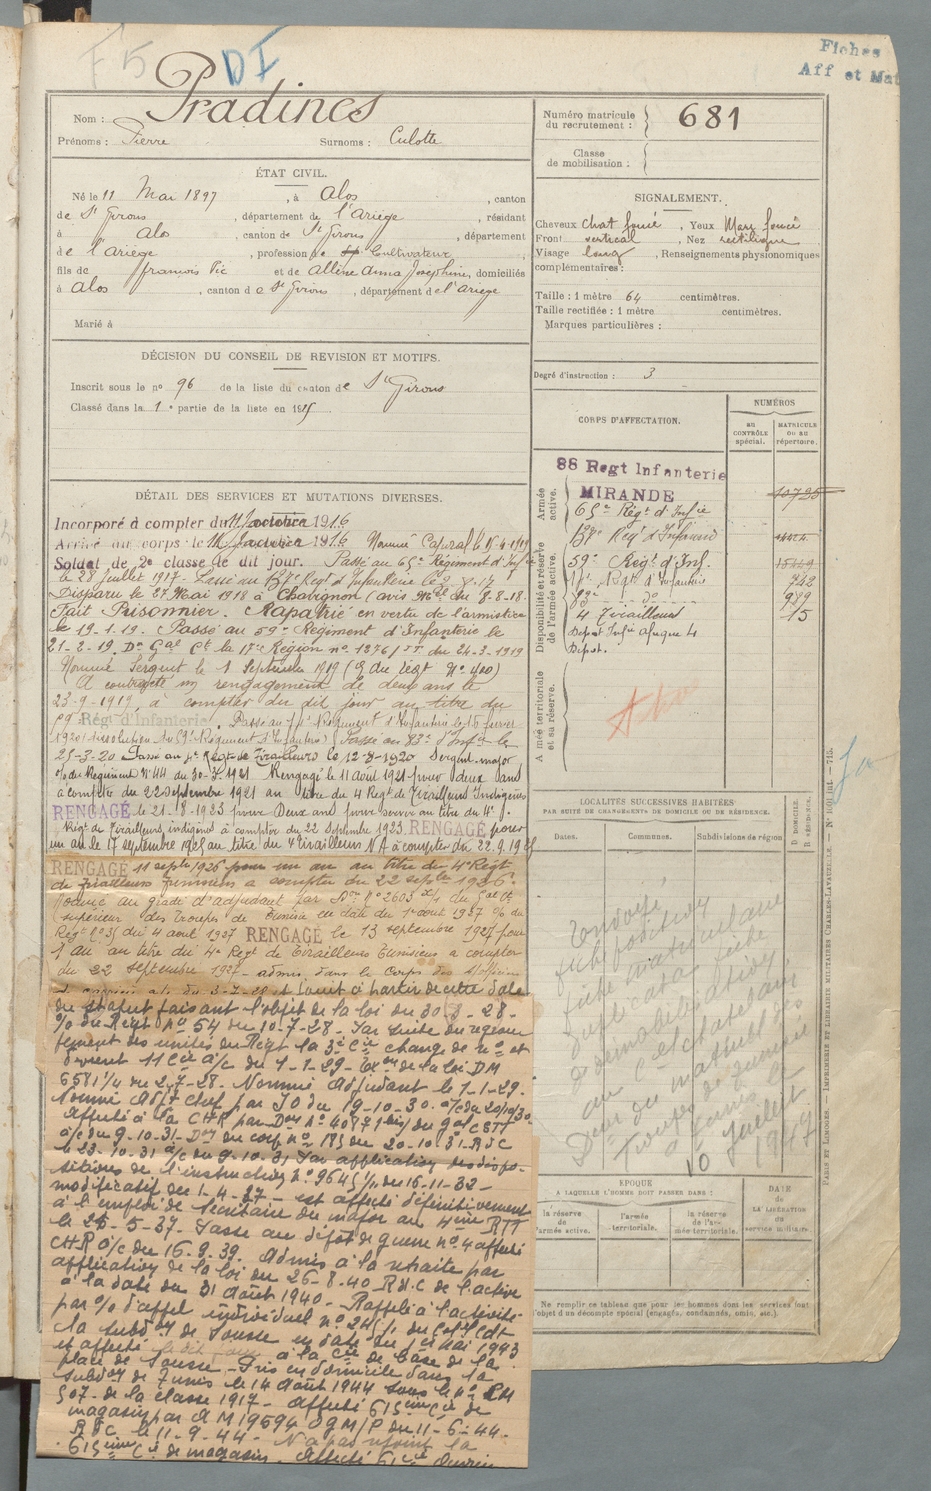 F5 DI
Fiches
Aff et Mat
Nom : Pradines
Prénoms : Pierre Surnoms : Culotte
ÉTAT CIVIL.
Né le 11 Mai 1897, à Alos, canton
de St Girons, département de l'Ariège, résidant
à Alos, canton de St Girons, département
de l'Ariège, profession de Cultivateur
fils de François Pie et de Allène Anna Joséphine, domiciliés
à Alos, canton de St Girons, département de l'Ariège
Marié à
DÉCISION DU CONSEIL DE REVISION ET MOTIFS.
Inscrit sous le no 96 de la liste du canton de St Girons
Classé dans la 1e partie de la liste en 191
DÉTAIL DES SERVICES ET MUTATIONS DIVERSES.
Incorporé à compter du 1916
Arrivé au corps le 1916 Nommé Caporal le
Soldat de 2e classe le dit jour. Passé au 65e Régiment d'Infie
le 28 juillet 1917. Passé au Régt d'Infanterie le
Disparu le 27 Mai 1918 à Chavignon (avis du 8-8-18
Fait Prisonnier. Rapatrié en vertu de l'armistice
le 19.1.19. Passé au 59e Régiment d'Infanterie le
21-2-19. Don Gal Ct la 17e Région no 1276/ du 24-3-1919
Nommé Sergent le 1 Septembre 1919 (O du Régt No 400)
A contracté un rengagement de deux ans le
23-9-1919, à compter du dit jour au titre du
59 Régt d'Infanterie. Passé au Régiment d'Infanterie le 15 février
1920 (dissolution du 59e Régiment d'Infanterie) Passé au 83e d'Infie le
25-3-20 Passé au 4e Régt de Tirailleurs le 12-8-1920 Sergent-major
o/ du Régiment No 44 du 30-3-1921 Rengagé le 11 août 1921 pour deux ans
à compter du 22 septembre 1921 au titre du 4 Régt de Tirailleurs Indigènes
RENGAGÉ le 21-8-1923 pour Deux ans pour servir au titre du 4e
Régt de Tirailleurs indigènes à compter du 22 septembre 1923. RENGAGÉ pour
un an le 17 septembre 1925 au titre du 4 tirailleurs N A à compter du 22.9.1925
RENGAGÉ 11 septe 1926 pour un an au titre du 4e Régt
de tirailleurs tunisiens à compter du 22 septe 1926.
Nommé au grade d'adjudant par Don No 2603 du Gal Ct
supérieur des Troupes de Tunisie en date du 1er août 1927 o/ du
Régt No 31 du 4 août 1927 RENGAGÉ le 13 septembre 1927 pour
1 an au titre du 4e Régt de Tirailleurs Tunisiens à compter
du 22 septembre 1927 - admis dans le Corps des S/officiers
de carrière à/c du 3-7-28 et soumis à partir de cette date
du statut faisant l'objet de la loi du 30-3-28.
o/ du Régt No 54 du 10-7-28. Par suite du regroupement
des unités du Régt la 3e Cie change de no et
devient 11 Cie à/c du 1-1-29 - de la loi DM
6581 1/4 du 2-7-28. Nommé Adjudant le 1-1-29.
Nommé Adjt chef par JO du 19-10-30. à/c du 20/10/30
Affecté à la CHR par Don No 4087 du Gal CSTT
à/c du 9-10-31 - Don du corps no 183 du 20-10-31 - RdC
le 23-10-31 à/c du 9-10-31 Par application des dispositions
de l'instruction no 9645 1/1 du 16-11-32 -
modificatif du 1-4-37 - est affecté définitivement
à l'emploi de Secrétaire du major au 4ème RTT
le 25-5-37. Passe au dépôt de guerre no 4 affecté
CHR à/c du 16-9-39. Admis à la retraite par
application de la loi du 26-8-40 RdC de l'active
à la date du 31 Août 1940 - Rappelé à l'activité
par o/ d'appel individuel no 24/1 du Cdt
la subdon de Sousse en date du 1er Mai 1943
et affecté le dit jour à la Cie de Base de la
place de Sousse - Pris en domicile dans la
subdon de Tunis le 14 Août 1944 sous le No RM
507 - de la classe 1917 - Affecté 615ème Cie de
magasin par A M 19694 OGM/P du 11-6-44.
RdC le 11-9-44 - N'a pas rejoint la
615ème Cie de magasin. Affecté
Numéro matricule du recrutement : 681
Classe de mobilisation :
SIGNALEMENT.
Cheveux chat foncé, Yeux Marr foncé
Front vertical, Nez rectiligne
Visage long, Renseignements physionomiques
complémentaires :
Taille : 1 mètre 64 centimètres.
Taille rectifiée : 1 mètre centimètres.
Marques particulières :
Degré d'instruction : 3
CORPS D'AFFECTATION.
NUMÉROS
AU CONTRÔLE spécial.
MATRICULE OU AU répertoire.
Armée active.
Disponibilité et réserve de l'armée active.
Armée territoriale et sa réserve.
88 Regt Infanterie
MIRANDE 10725
65e Régt d'Infie
Régt d'Infanterie
59e Régt d'Inf. 15449
Régt d'Infanterie 742
83e do 989
4 Tirailleurs 15
Depot Infie Afrique 4
Depot.
LOCALITÉS SUCCESSIVES HABITÉES
PAR SUITE DE CHANGEMENTS DE DOMICILE OU DE RÉSIDENCE.
Dates. Communes. Subdivisions de région
D DOMICILE.
R RÉSIDENCE.
Envoyé
fiche position
fiche matriculaire
duplicata fiche
démobilisation
au Cel Chatelain
Dteur du matricul des
Troupes de Tunisie
à Tunis le
10 Juillet
1947
ÉPOQUE
A LAQUELLE L'HOMME DOIT PASSER DANS :
la réserve de l'armée active.
l'armée territoriale.
la réserve de l'armée territoriale.
DATE de LA LIBÉRATION du service militaire.
Ne remplir ce tableau que pour les hommes dans les services font
l'objet d'un décompte spécial (engagés, condamnés, omis, etc.).
PARIS ET LIMOGES. — IMPRIMERIE ET LIBRAIRIE MILITAIRES CHARLES-LAVAUZELLE.